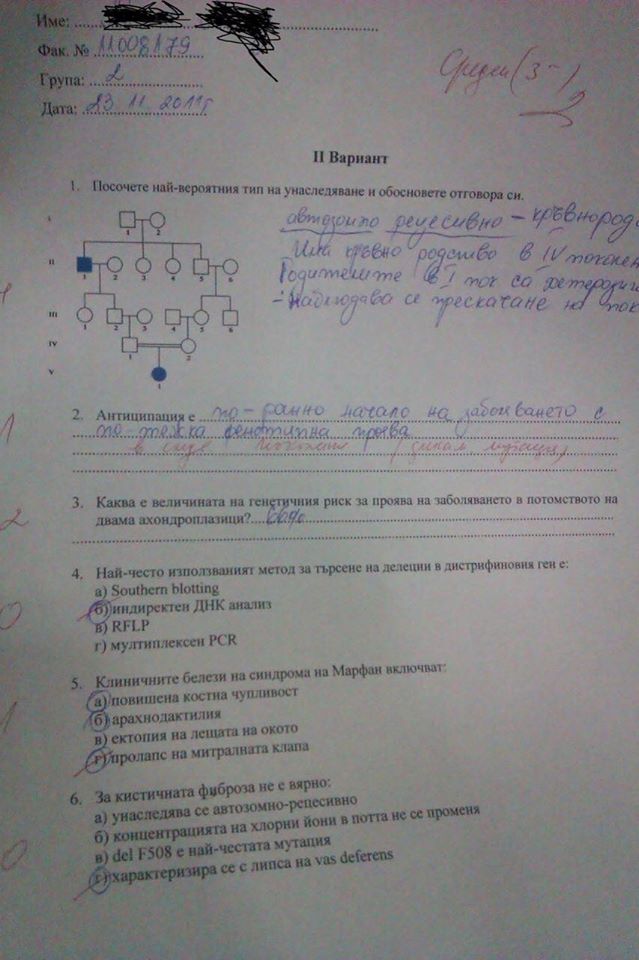 Име:
Фак. № 11008179
Група: 2
Дата: 23 11. 2011г
Среден (3-)
2
II Вариант
1. Посочете най-вероятния тип на унаследяване и обосновете отговора си.
автозомно рецесивно – кръвнород
Има кръвно родство в IV поколен
Родителите в I пок са хетерозиг
- Наблюдава се прескачане на пок
I
1 2
II
1 2 3 4 5 6
III
1 2 3 4 5 6
IV
1 2
V
1
1
2. Антиципация е по-ранно начало на заболяването с
по-тежка фенотипна проява
1
3. Каква е величината на генетичния риск за проява на заболяването в потомството на
двама ахондроплазици?
2
4. Най-често използваният метод за търсене на делеции в дистрифиновия ген е:
а) Southern blotting
б) индиректен ДНК анализ
в) RFLP
г) мултиплексен PCR
0
5. Клиничните белези на синдрома на Марфан включват:
а) повишена костна чупливост
б) арахнодактилия
в) ектопия на лещата на окото
г) пролапс на митралната клапа
1
6. За кистичната фиброза не е вярно:
а) унаследява се автозомно-рецесивно
б) концентрацията на хлорни йони в потта не се променя
в) del F508 е най-честата мутация
г) характеризира се с липса на vas deferens
0